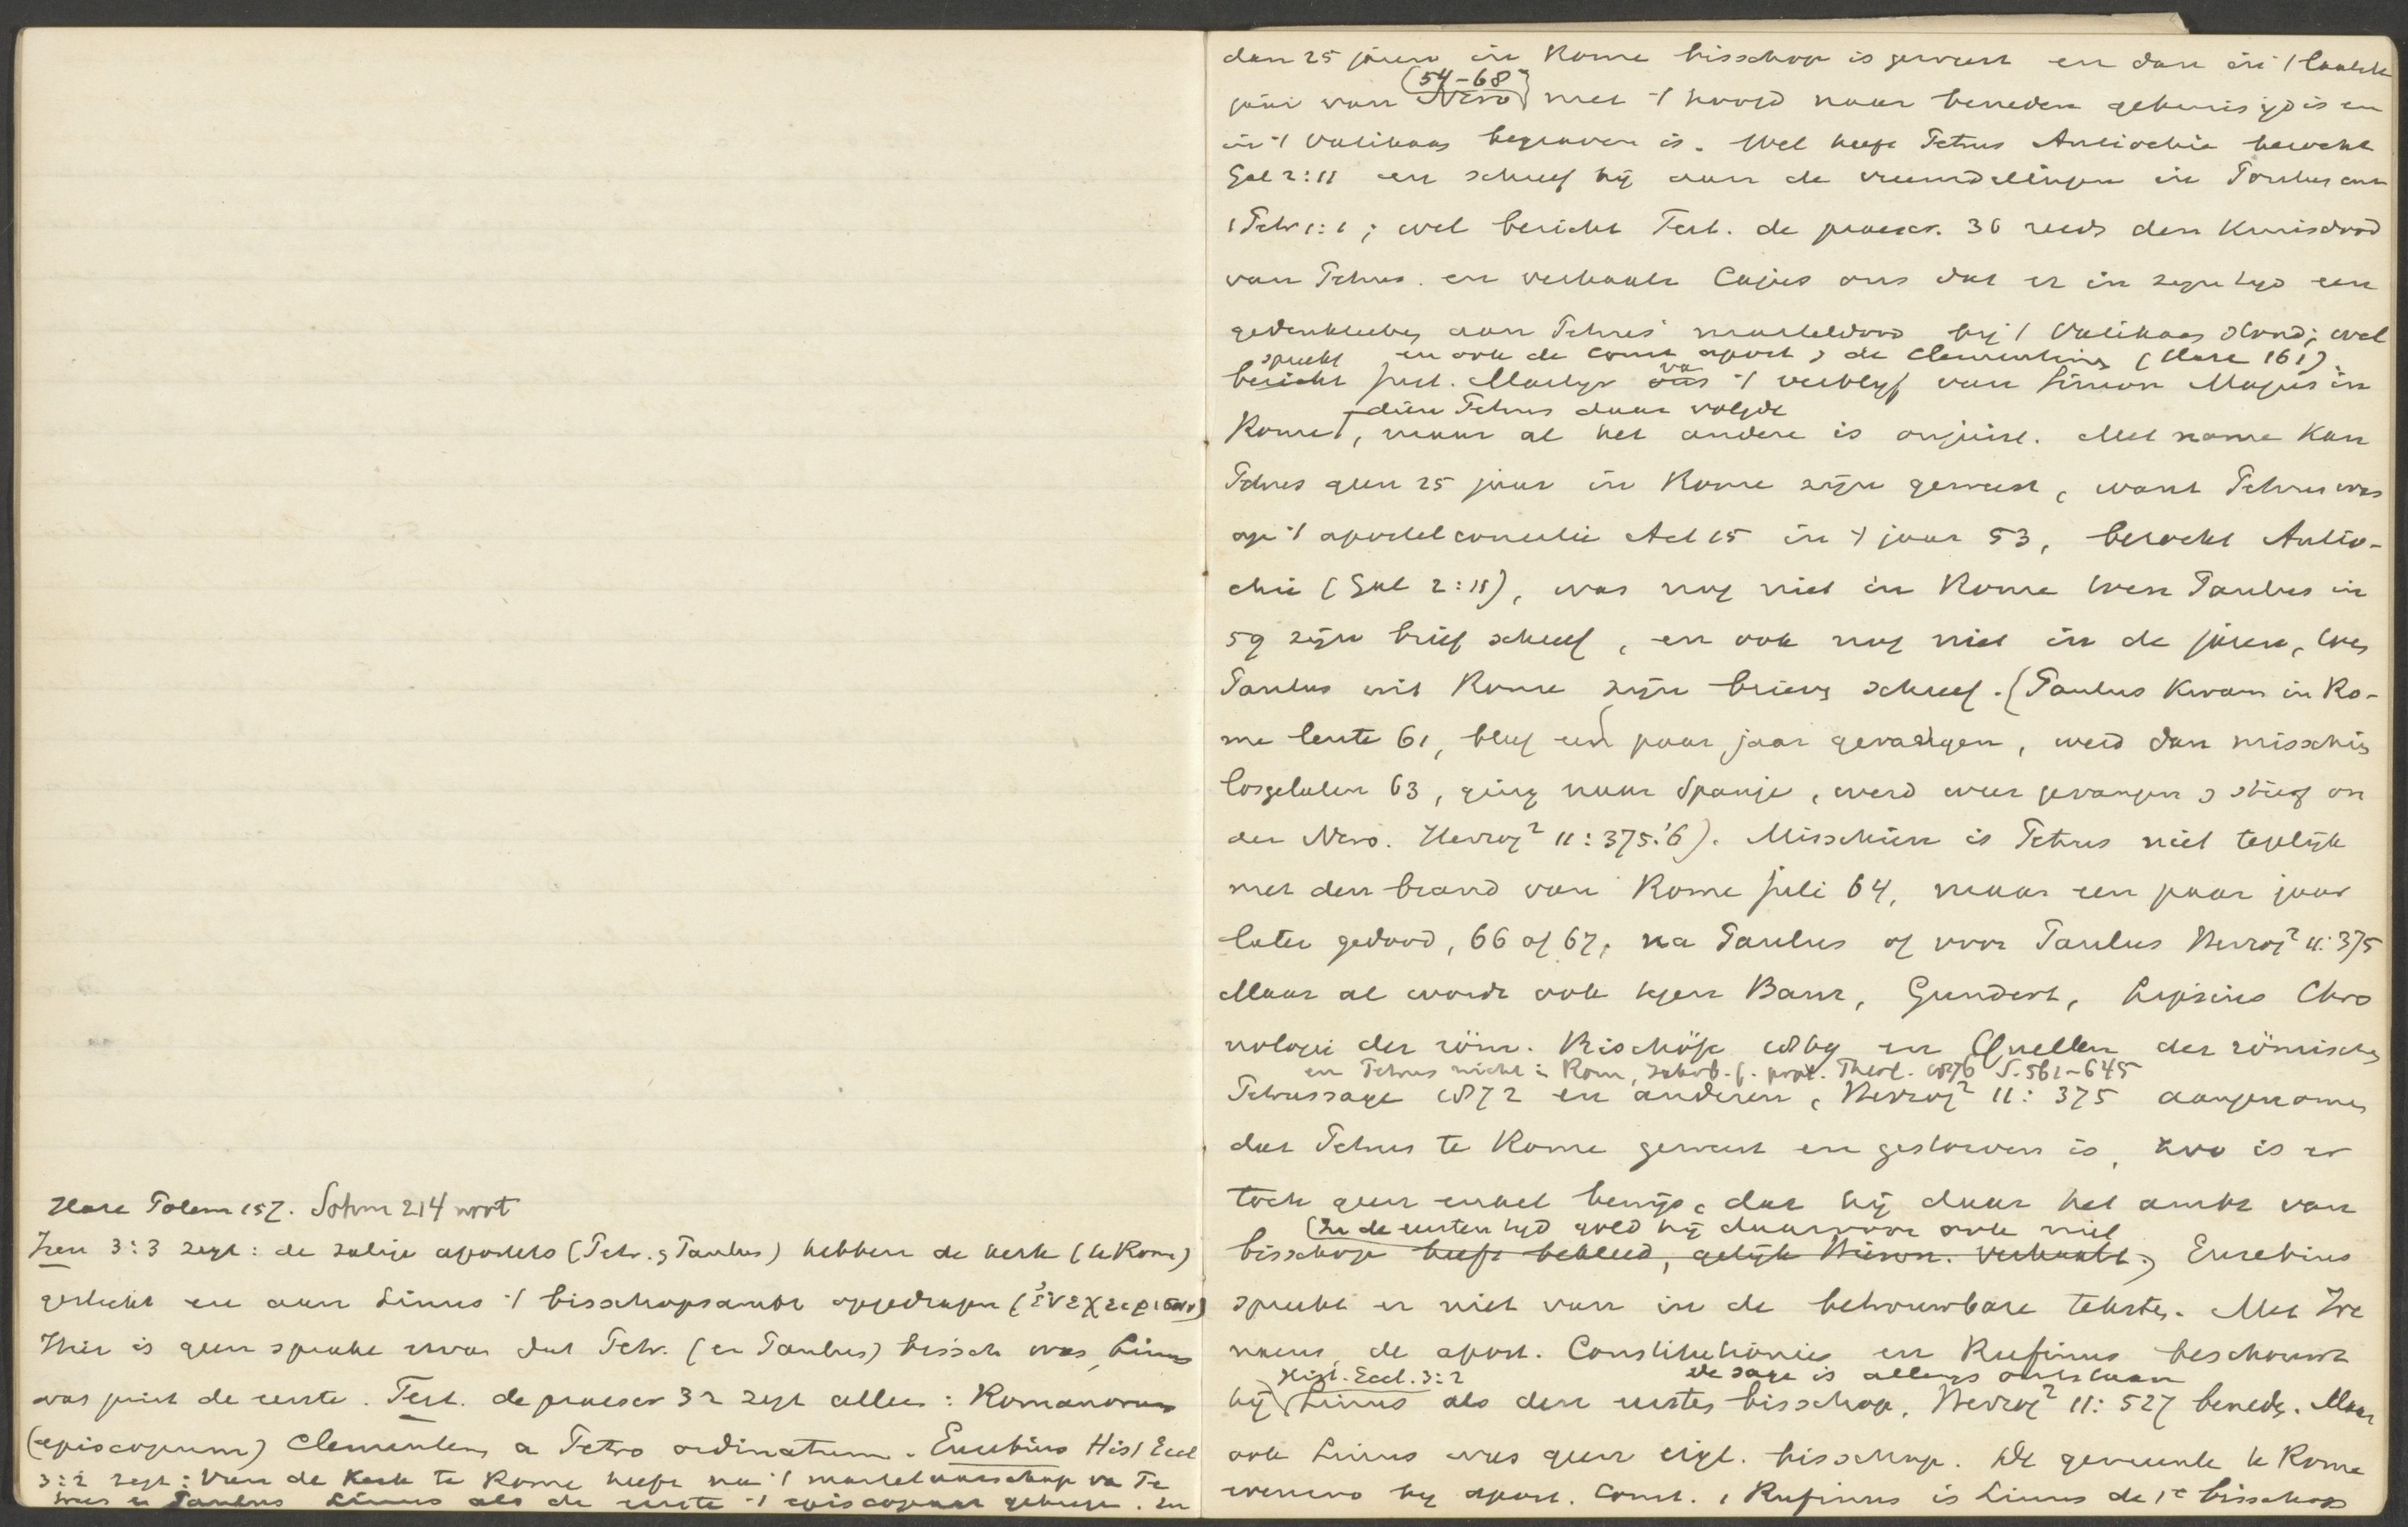 Hase Polem 157. Sohm 214 noot
Iren 3:3 zegt: de zalige apostels (Petr. & Paulus) hebben de kerk (te Rome)
gesticht en aan Linus 't bisschopsambt opgedragen
Hier is geen sprake ervan dat Petr. (en Paulus) bissch was, Linus
was juist de eerste. Tert. de praescr 32 zegt alleen: Romanorum
(episcopum) Clementem a Petro ordinatum. Eusebius Hist Eccl
3:2 zegt: Van de Kerk te Rome heeft na 't martelaarschap van Pe
trus en Paulus Linus als de eerste 't episcopaat gekregen. En
dan 25 jaren in Rome bisschop is geweest en dan in 't laatste
(54-68)
jaar van Nero met 't hoofd naar beneden gekruisigd is en
in 't Vatikaan begraven is. Wel heeft Petrus Antiochie bezocht
Gal 2:11 en schreef hij aan de vreemdelingen in Pontus enz
1 Petr 1:1; wel bericht Tert. de praescr. 36 reeds den kruisdood
van Petrus. en verhaalt Cajus ons dat er in zijn tijd een
gedenkteeken aan Petrus' marteldood bij 't Vatikaan stond; wel
spreekt en ook de Const. apost & de Clementinen (Hase 161)
bericht Just. Martyr ons van 't verblijf van Simon Magus in
dien Petrus daar volgde
Rome, maar al het andere is onjuist. Met name kan
Petrus geen 25 jaar in Rome zijn geweest, want Petrus was
op 't apostelconcilie Act 15 in 't jaar 53, bezocht Antio-
chie (Gal 2:11), was nog niet in Rome toen Paulus in
59 zijn brief schreef, en ook nog niet in de jaren, toen
Paulus uit Rome zijn brieven schreef. (Paulus kwam in Ro-
me lente 61, bleef een paar jaar gevangen, werd dan misschien
losgelaten 63, ging naar Spanje, werd weer gevangen & stierf on
der Nero. Herzog² 11:375.'6). Misschien is Petrus niet tegelijk
met den brand van Rome Juli 64, maar een paar jaar
later gedood, 66 of 67, na Paulus of voor Paulus Herzog² 11:375
Maar al wordt ook tegen Baur, Gundert, Lipsius Chro
nologie der röm. Bischöfe 1869 en Quellen der römischen
en Petrus nicht in Rom, Jahrb. f. prot. Theol. 1876 S. 561-645
Petrussage 1872 en anderen, Herzog² 11: 375 aangenomen
dat Petrus te Rome geweest en gestorven is, zoo is er
toch geen enkel bewijs, dat hij daar het ambt van
(In de eersten tijd gold hij daarvoor ook niet
bisschop heeft bekleed, gelijk Hieron. verhaalt.) Eusebius
spreekt er niet van in de betrouwbare teksten. Met Ire
naeus, de apost. Constitutiones en Rufinus beschouwt
Hist. Eccl. 3:2 de sage is allengs ontstaan
hij Linus als den eersten bisschop, Herzog² 11: 527 beneden. Maar
ook Linus was geen eigl. bisschop. De gemeente te Rome
evenzoo bij apost. Const. & Rufinus is Linus de 1e bisschop